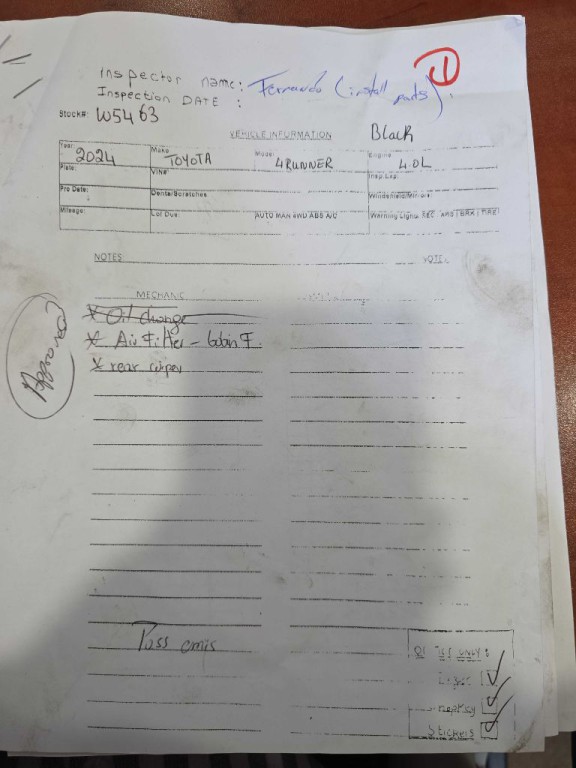 1
Inspector name: Fernando (install parts).
Inspection DATE :
Stock#: W5463
VEHICLE INFORMATION
Black
Year: 2024 Make: TOYOTA Model: 4RUNNER Engine: 4.0L
Plate: VIN#: Insp.Exp:
Pro Date: Dents/Scratches Windshield/Mirrors:
Mileage: Lot Due: AUTO MAN 4WD ABS A/C Warning Lights:
NOTES
MECHANIC
* Oil change
* Air Filter - Cabin F.
* rear
Approved
Pass emis
ONLY:
Stickers